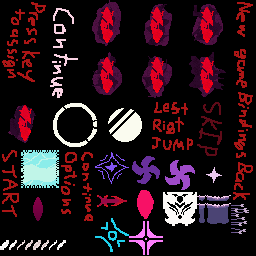 Press key
to assign
Continue
New game
Bindings
Back
Left
Rigt
JUMP
SKIP
START
Options
Continue